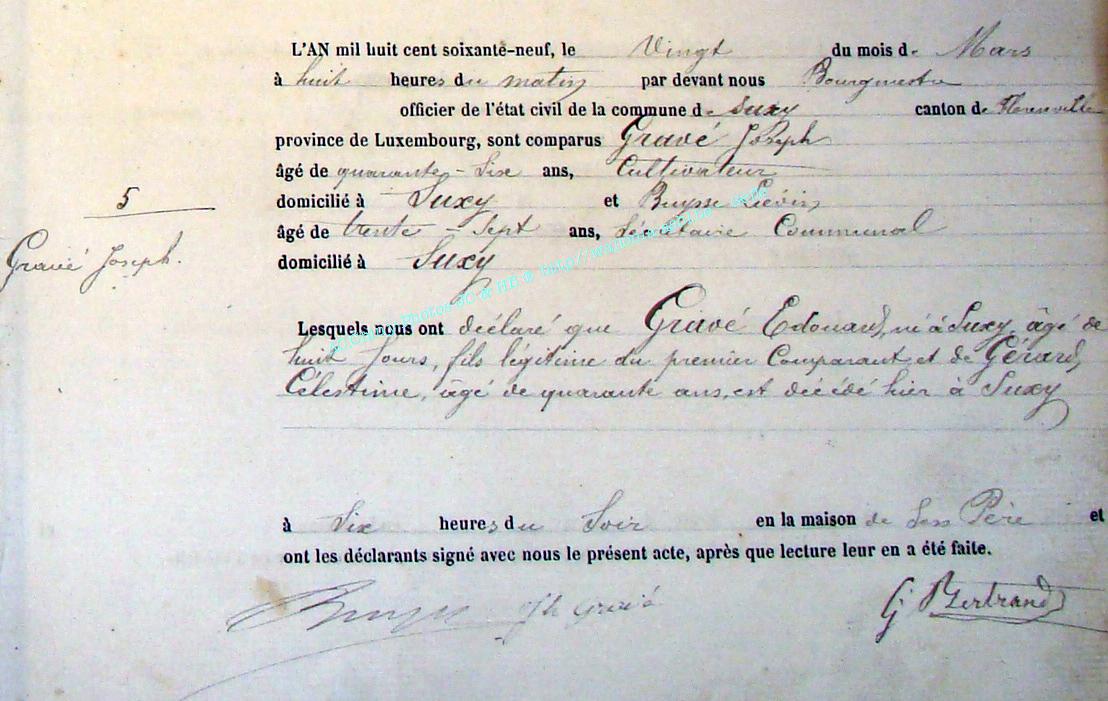 L'AN mil huit cent soixante-neuf, le Vingt du mois de Mars
à huit heures du matin par devant nous Bourgmestre
officier de l'état civil de la commune de Suxy canton de Florenville
province de Luxembourg, sont comparus Gravé Joseph
âgé de quarante-six ans, Cultivateur
5
domicilié à Suxy et Buysse Liévin
âgé de trente-Sept ans, Sécrétaire Communal
Gravé Joseph.
domicilié à Suxy
Photos JC & HB @ http//
Lesquels nous ont déclaré que Gravé Edouard, né à Suxy, âgé de
huit Jours, fils légitime du premier Comparant et de Gérard,
Célestine, âgé de quarante ans, est décédé hier à Suxy
à Six heures du Soir en la maison de Son Père et
ont les déclarants signé avec nous le présent acte, après que lecture leur en a été faite.
Buysse Jh Gravé G Bertrand